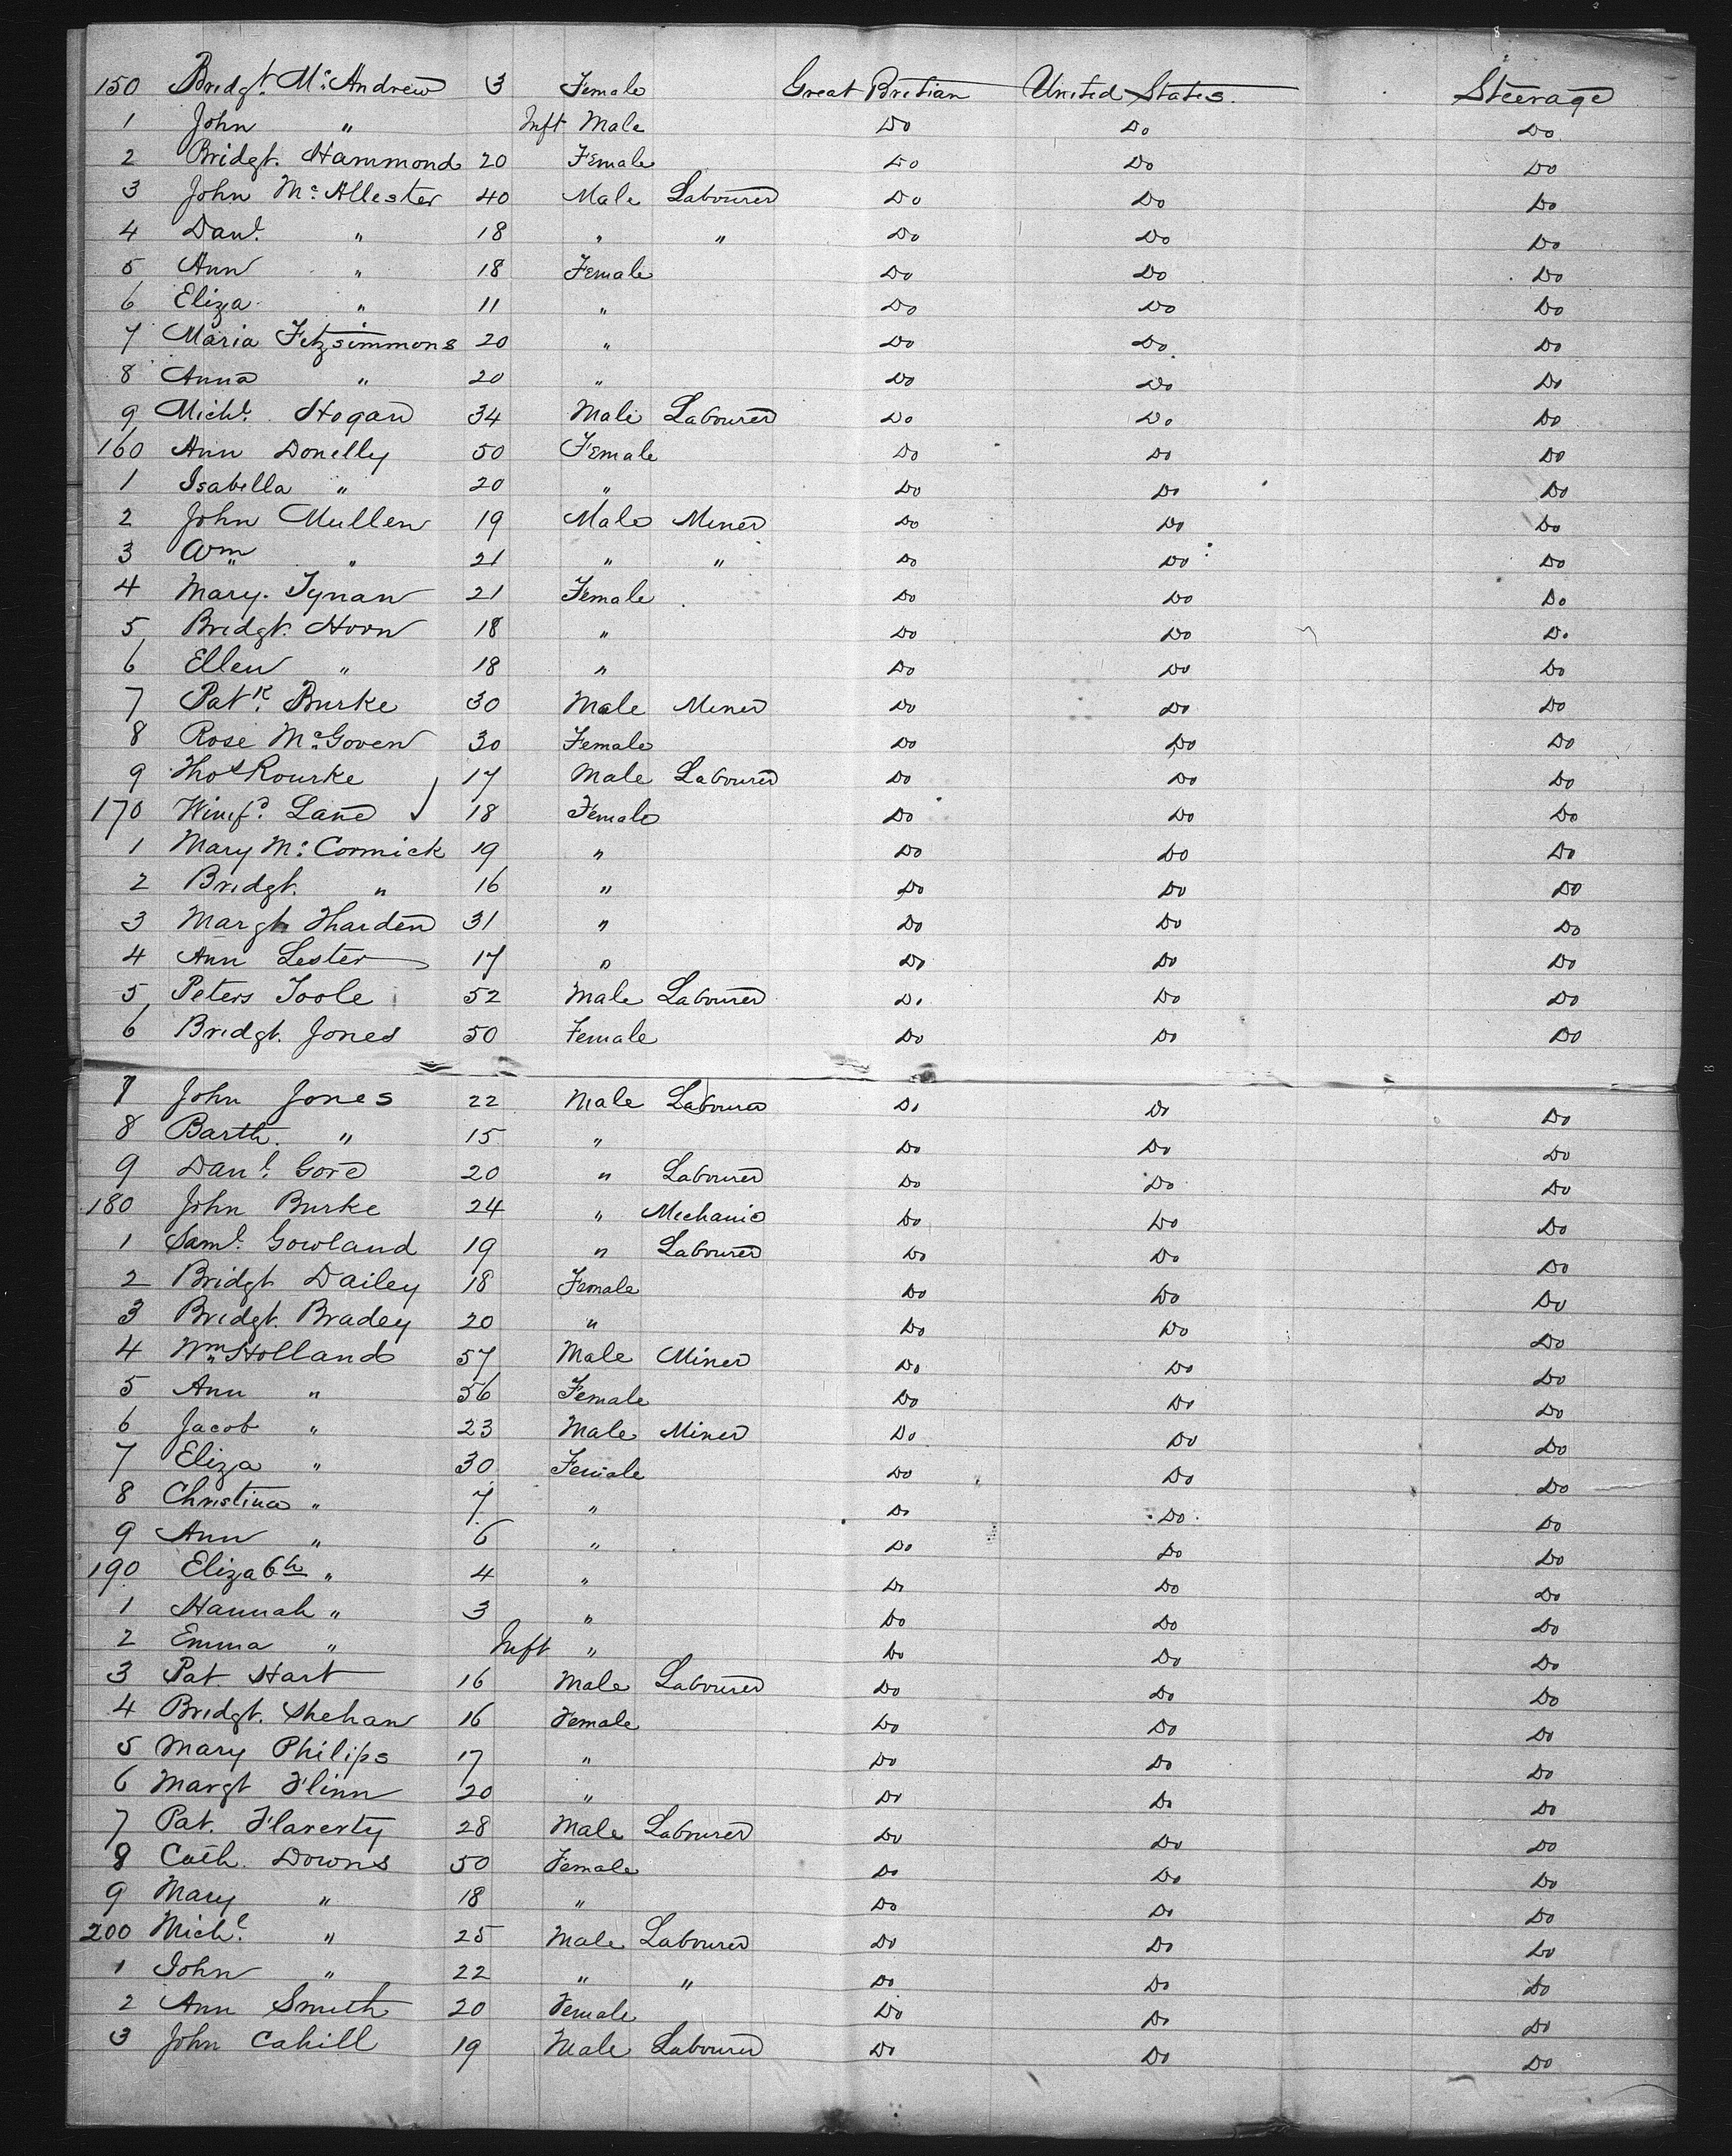 150 Bridgt. Mc Andrew 3 Female Great Britian United States. Steerage
1 John " Inft Male Do Do Do
2 Bridgt. Hammond 20 Female Do Do Do
3 John Mc Allester 40 Male Labourer Do Do Do
4 Danl. " 18 " " Do Do Do
5 Ann " 18 Female Do Do Do
6 Eliza " 11 " Do Do Do
7 Maria Fitzsimmons 20 " Do Do Do
8 Anna " 20 " Do Do Do
9 Michl. Hogan 34 Male Labourer Do Do Do
160 Ann Donelly 50 Female Do Do Do
1 Isabella " 20 " Do Do Do
2 John Mullen 19 Male Miner Do Do Do
3 Wm " 21 " " Do Do Do
4 Mary. Tynan 21 Female Do Do Do
5 Bridgt. Horn 18 " Do Do Do
6 Ellen " 18 " Do Do Do
7 Patk. Burke 30 Male Miner Do Do Do
8 Rose Mc Goven 30 Female Do Do Do
9 Thos Rourke 17 Male Labourer Do Do Do
170 Winifd. Lane 18 Female Do Do Do
1 Mary Mc Cormick 19 " Do Do Do
2 Bridgt. " 16 " Do Do Do
3 Margt Tharden 31 " Do Do Do
4 Ann Lester 17 " Do Do Do
5 Peters Toole 52 Male Labourer Do Do Do
6 Bridgt. Jones 50 Female Do Do Do
7 John Jones 22 Male Labourer Do Do Do
8 Barth. " 15 " Do Do Do
9 Danl. Gore 20 " Labourer Do Do Do
180 John Burke 24 " Mechanic Do Do Do
1 Saml. Gowland 19 " Labourer Do Do Do
2 Bridgt Dailey 18 Female Do Do Do
3 Bridgt. Bradey 20 " Do Do Do
4 Wm Holland 57 Male Miner Do Do Do
5 Ann " 56 Female Do Do Do
6 Jacob " 23 Male Miner Do Do Do
7 Eliza " 30 Female Do Do Do
8 Christina " 7 " Do Do Do
9 Ann " 6 " Do Do Do
190 Elizabh " 4 " Do Do Do
1 Hannah " 3 " Do Do Do
2 Emma " Inft " Do Do Do
3 Pat. Hart 16 Male Labourer Do Do Do
4 Bridgt. Shehan 16 Female Do Do Do
5 Mary Philips 17 " Do Do Do
6 Margt Flinn 20 " Do Do Do
7 Pat. Flaverty 28 Male Labourer Do Do Do
8 Cath. Downs 50 Female Do Do Do
9 Mary " 18 " Do Do Do
200 Michl. " 25 Male Labourer Do Do Do
1 John " 22 " " Do Do Do
2 Ann Smith 20 Female Do Do Do
3 John Cahill 19 Male Labourer Do Do Do